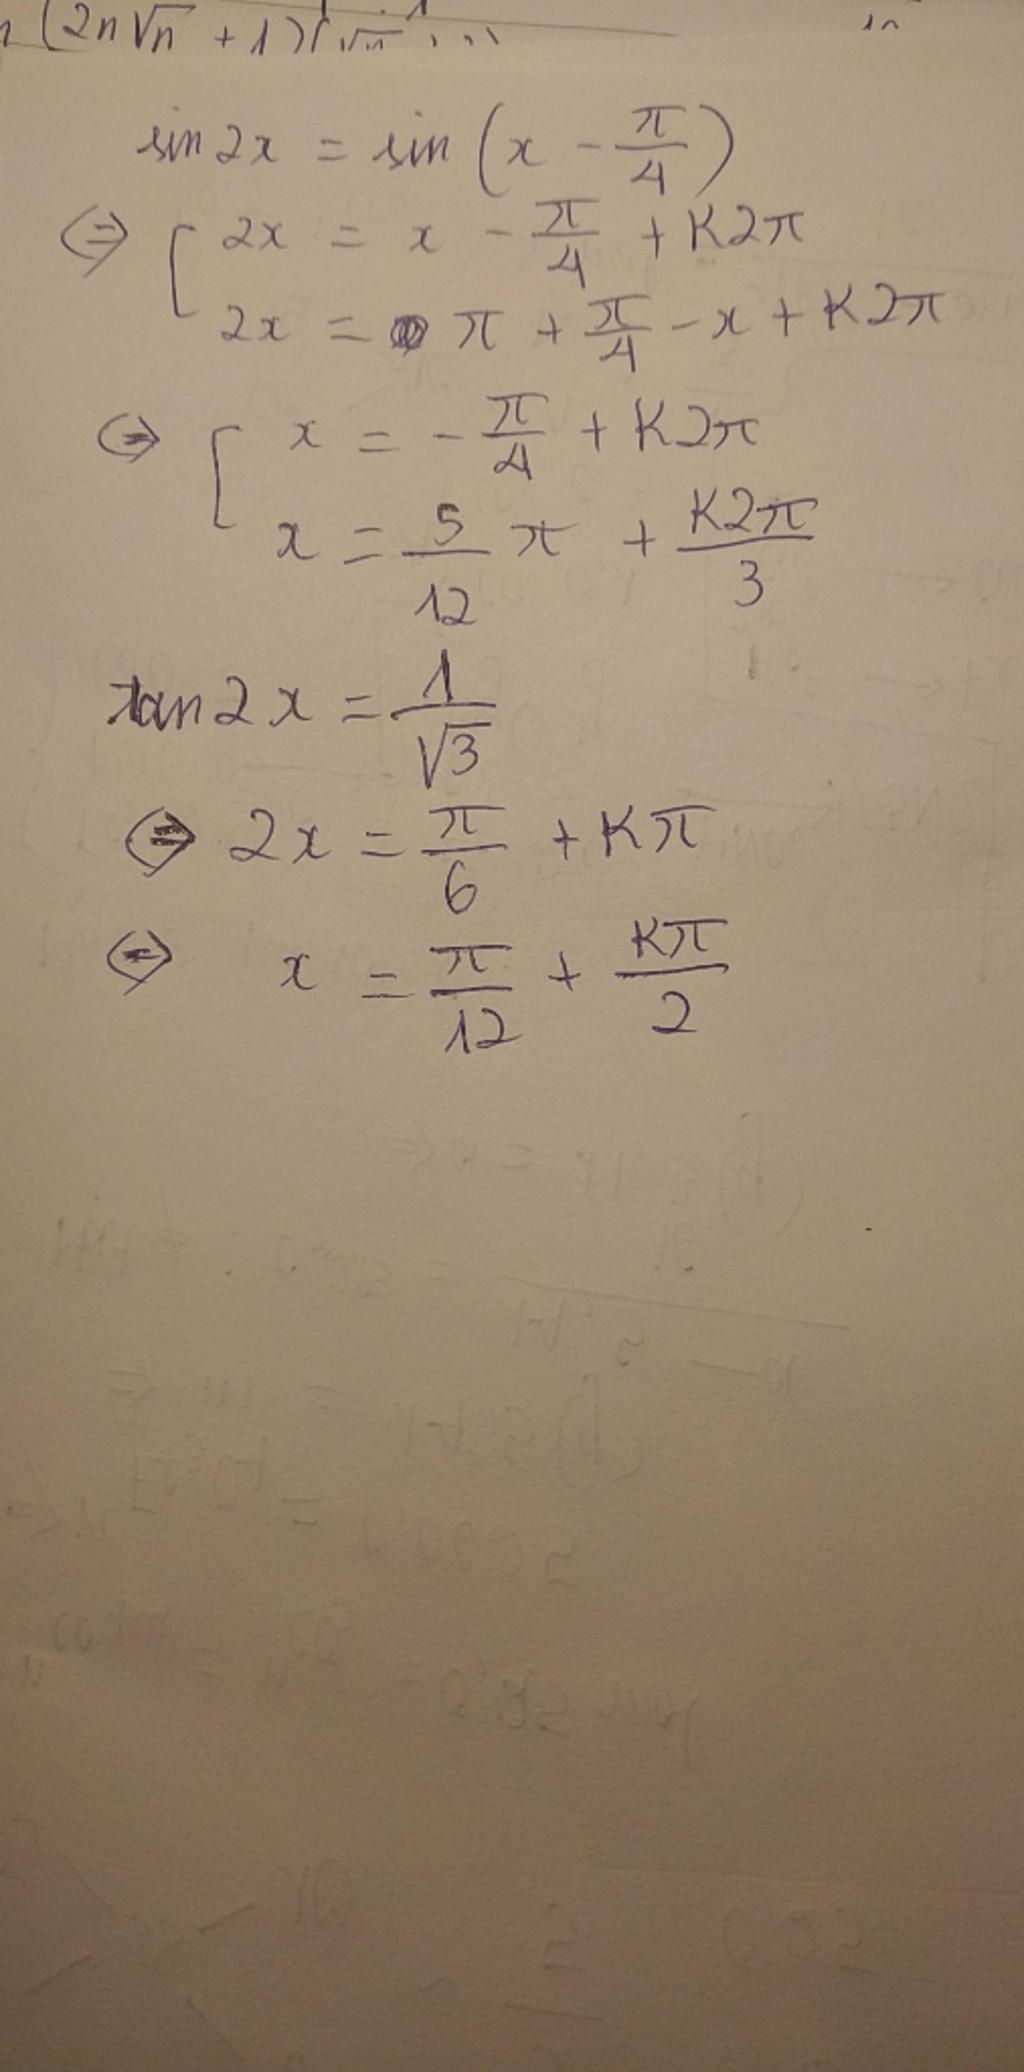 (2n√n + 1)
sin 2x = sin (x - π/4)
⇔ [ 2x = x - π/4 + K2π
2x = π + π/4 - x + K2π
⇔ [ x = - π/4 + K2π
x = 5/12 π + K2π/3
tan 2x = 1/√3
⇔ 2x = π/6 + Kπ
⇔ x = π/12 + Kπ/2